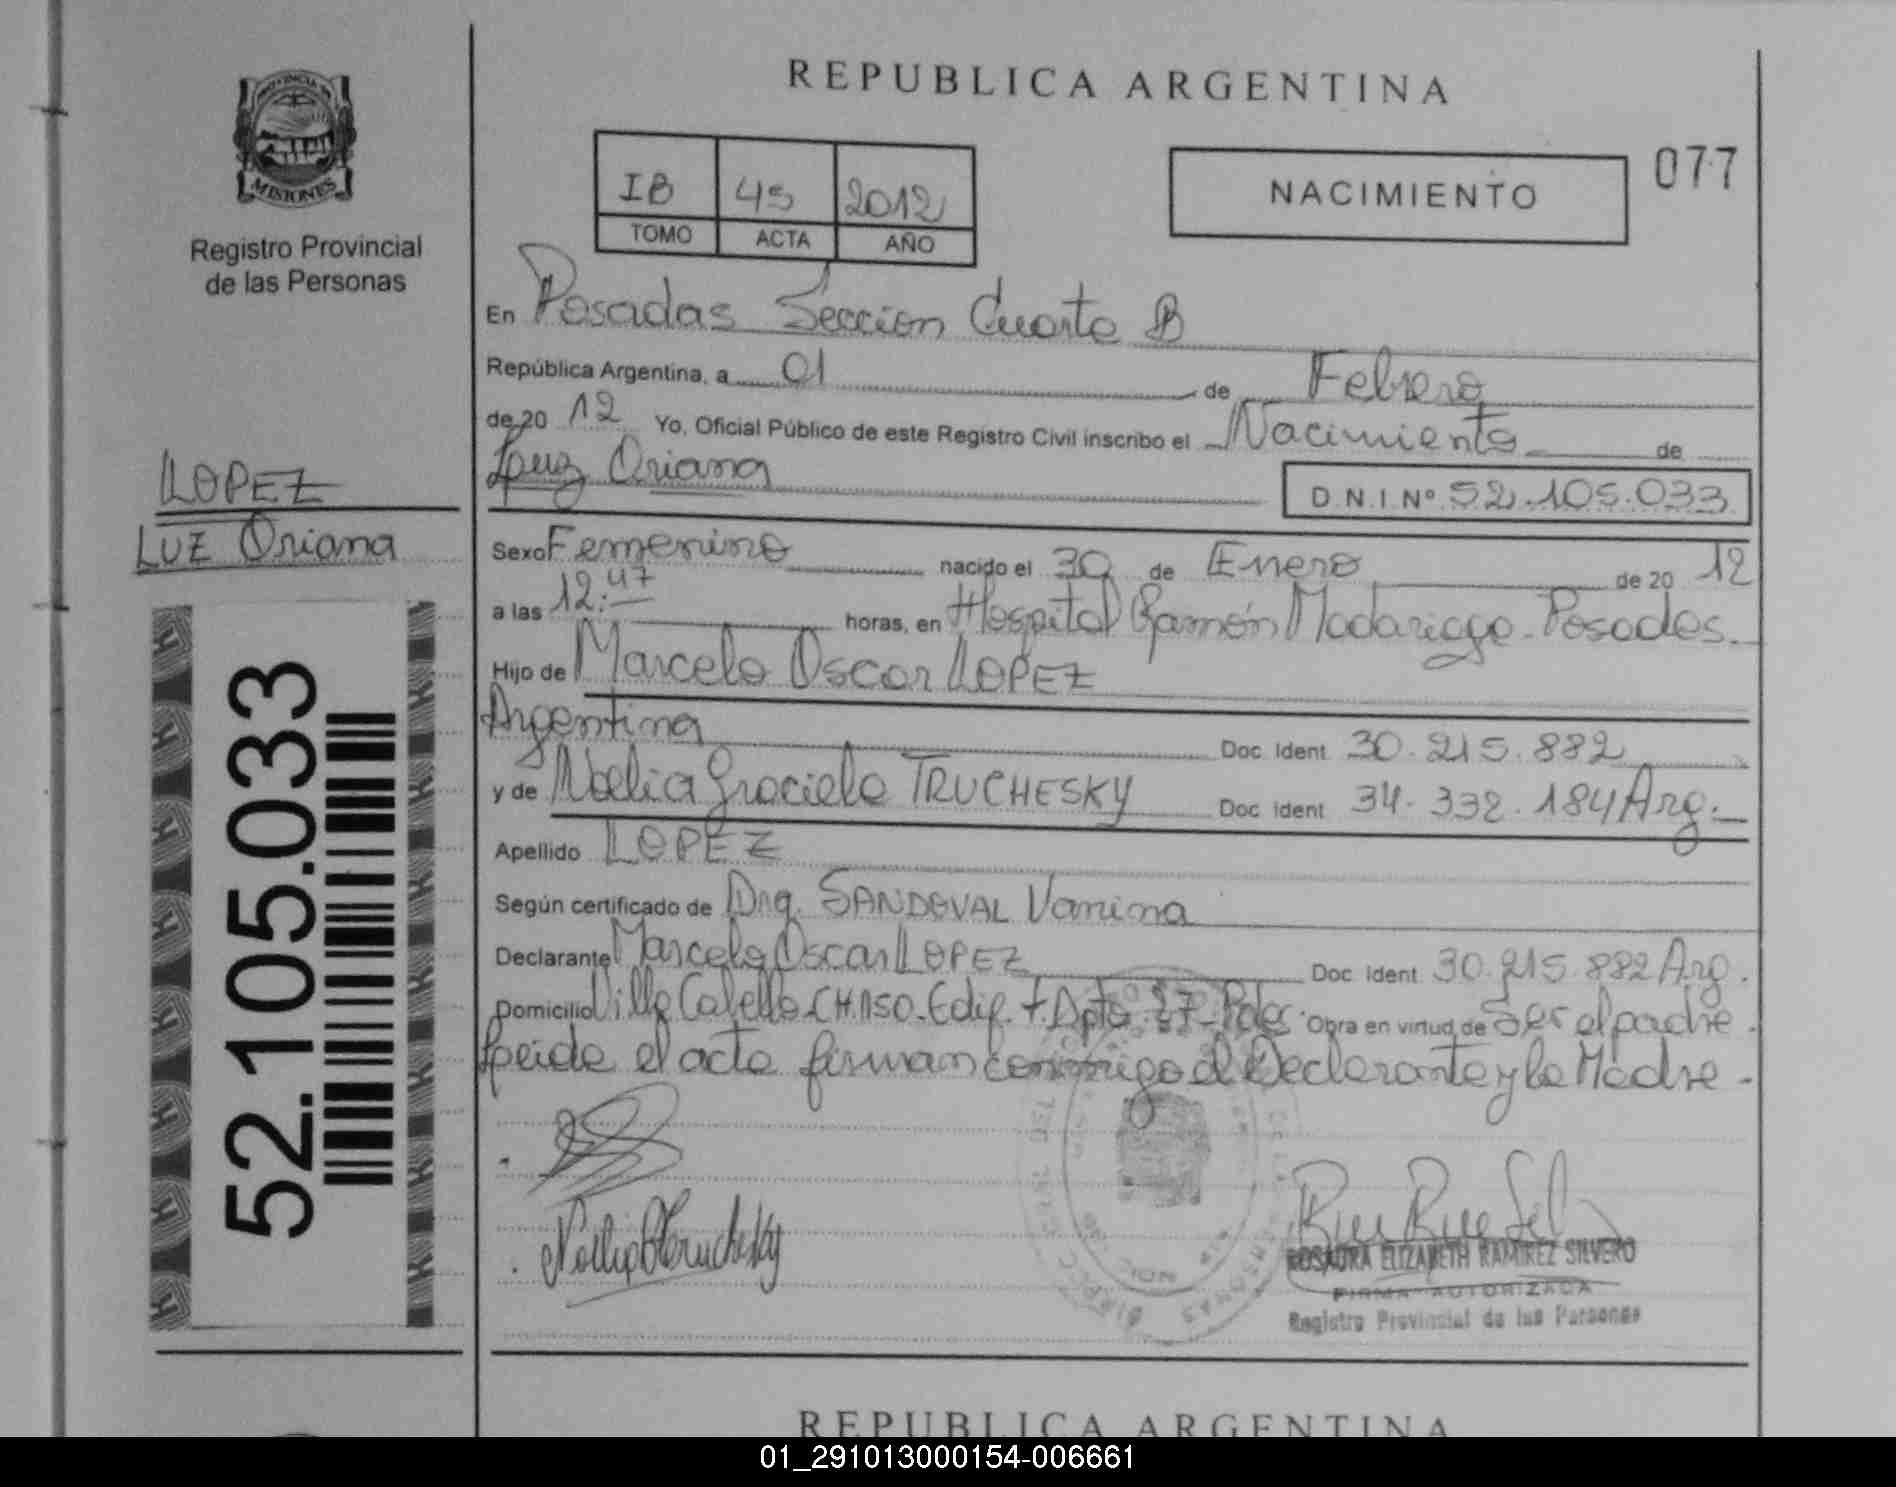 REPUBLICA ARGENTINA
PROVINCIA DE
MISIONES
Registro Provincial
de las Personas
IB 45 2012
TOMO ACTA AÑO
NACIMIENTO
077
En Posadas Sección Cuarta B
República Argentina, a 01 de Febrero
de 20 12 Yo, Oficial Público de este Registro Civil inscribo el Nacimiento de
Luz Oriana D.N.I.Nº 52.105.033
LOPEZ
LUZ Oriana
52.105.033
Sexo Femenino nacido el 30 de Enero de 20 12
a las 12:47 horas, en Hospital Ramón Madariaga - Posadas.
Hijo de Marcelo Oscar LOPEZ
Argentina Doc. Ident. 30.215.882
y de Noelia Graciela TRUCHESKY Doc Ident 34.332.184 Arg.
Apellido LOPEZ
Según certificado de Dra. SANDOVAL Vanina
Declarante Marcelo Oscar LOPEZ Doc Ident 30.215.882 Arg.
Domicilio Villa Cabello CH.150. Edif. Dpto 27 - Pdas Obra en virtud de Ser el padre.
Leida el acta firman conmigo el Declarante y la Madre.
ROSAURA ELIZABETH RAMIREZ SILVERO
FIRMA AUTORIZADA
Registro Provincial de las Personas
REPUBLICA ARGENTINA
01_291013000154-006661